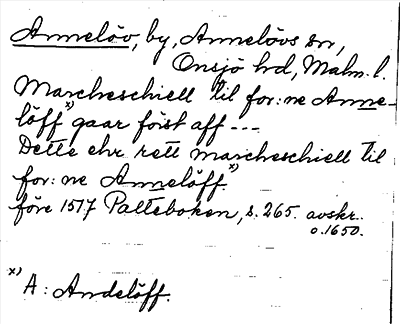 Annelöv, by, Annelövs sn,
Onsjö hd, Malm. l.
Marcheschiell til for:ne Anne-
löff x) gaar först aff ---
Dette ehr rett marcheschiell til
for:ne Annelöff x)
före 1517 Palteboken, s. 265. avskr.
o. 1650.
x) A: Andelöff.